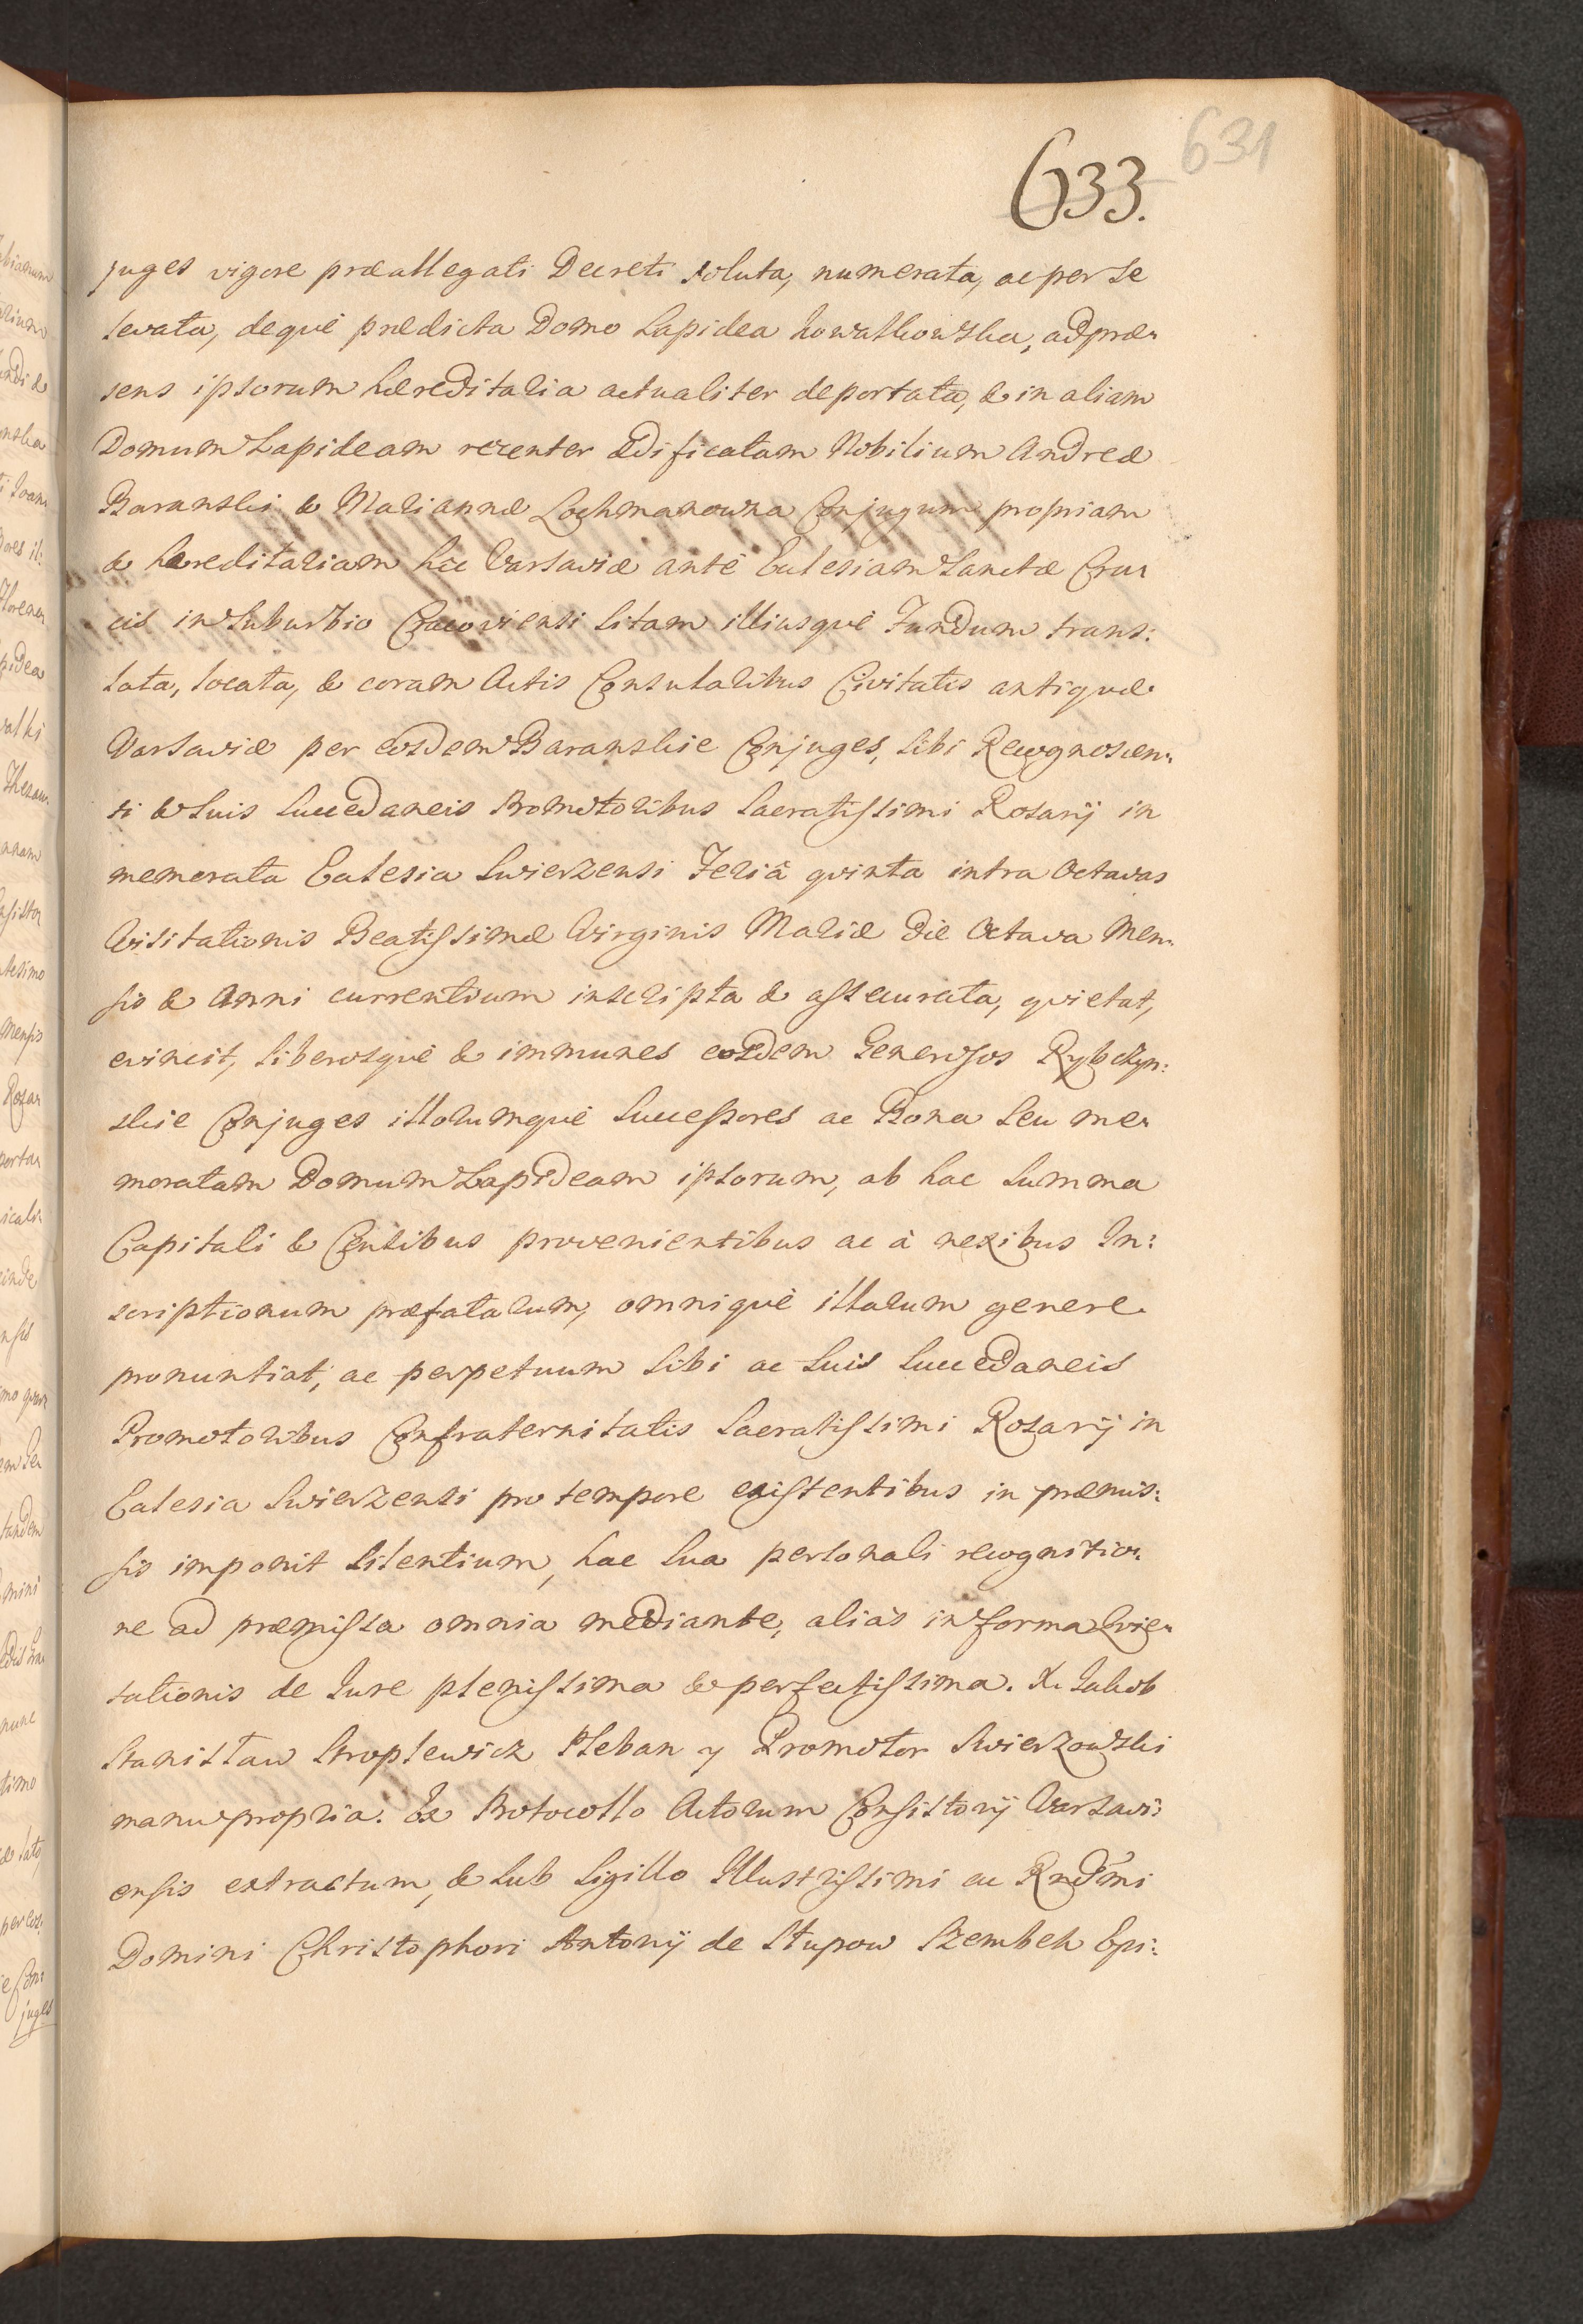 631
633.
juges vigore præallegati Decreti soluta, numerata, ac per se
levata, deque prædicta Domo Lapidea Kowalkowska, ad præ-
sens ipsorum hæreditaria actualiter deportata, & in aliam
Domum Lapideam recenter ædificatam Nobilium Andreæ
Baranski & Mariannæ Lochmanowna Conjugum propriam
& hæreditariam hic Varsaviæ ante Ecclesiam Sanctæ Cru-
cis in Suburbio Cracoviensi sitam illiusque Fundum trans:
lata, locata, & coram Actis Consularibus Civitatis antiquæ
Varsaviæ per eosdem Baranskie Conjuges, sibi Recognoscen-
ti & suis succedaneis Promotoribus Sacratissimi Rosarij in
memorata Ecclesia Swierzensi Feriâ quinta intra Octavas
Visitationis Beatissimæ Virginis Mariæ die Octava Men-
sis & Anni currentium inscripta & assecurata, quietat,
evincit, liberosque & immunes eosdem Generosos Rybczyn:
skie Conjuges illorumque Successores ac Bona seu me-
moratam Domum Lapideam ipsorum, ab hac summa
Capitali & Censibus provenientibus ac à nexibus In:
scriptionum præfatarum, omnique illarum genere
pronuntiat, ac perpetuum sibi ac suis succedaneis
Promotoribus Confraternitatis Sacratissimi Rosarij in
Ecclesia Swierzensi pro tempore existentibus in præmis:
sis imponit silentium, hac sua personali recognitio-
ne ad præmissa omnia mediante, aliàs in forma Quie-
tationis de Jure plenissima & perfectissima. X. Jakob
Stanisław Stroplewicz Pleban y Promotor Swierzowski
manu propria. Ex Protocollo Actorum Consistorij Varsavi:
ensis extractum, & sub Sigillo Illustrissimi ac Rndmi
Domini Christophori Antonij de Słupow Szembek Epi: